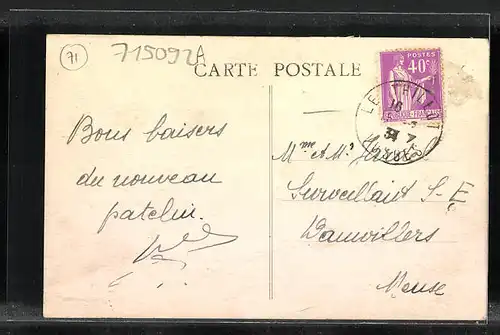 71
715092A
CARTE POSTALE
POSTES
40c
Bons baisers
du nouveau
patelin.
Mme et Mr
Surveillant S-E
Damvillers
Meuse